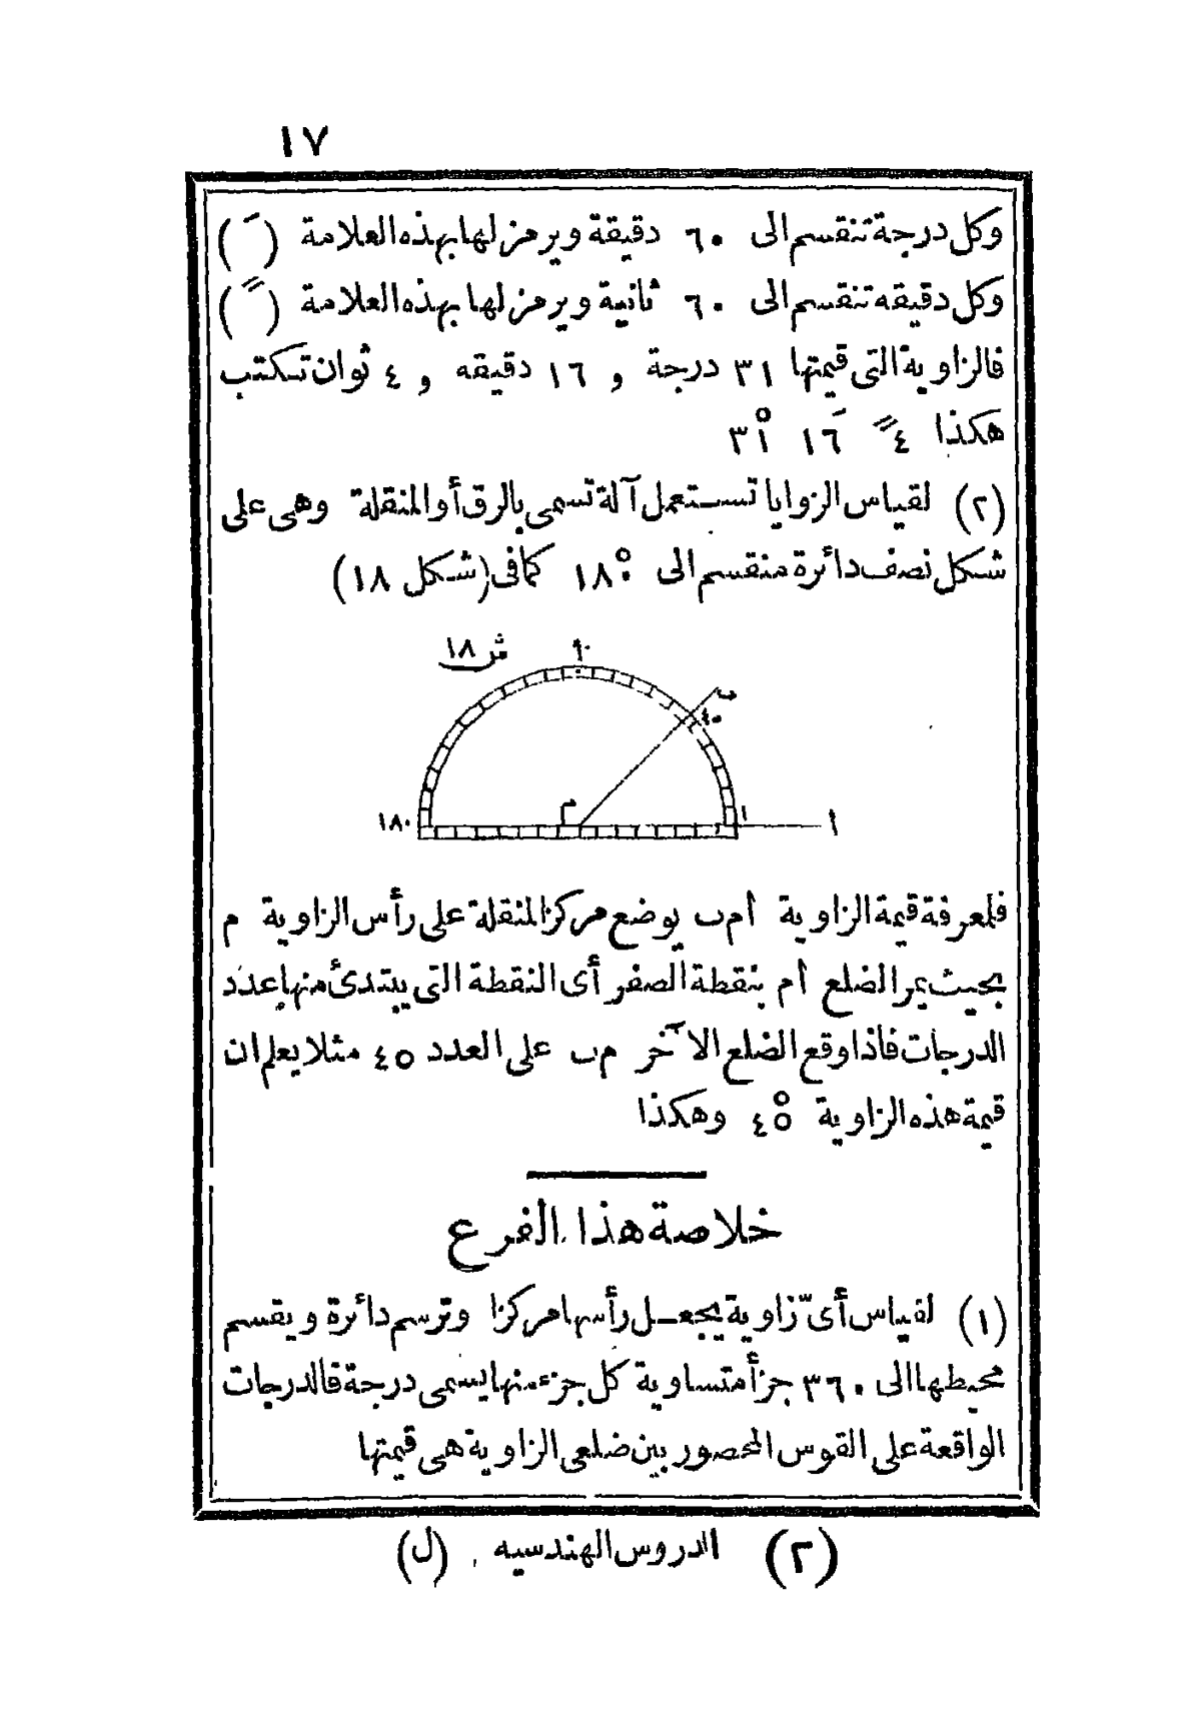 ١٧
وكل درجة تنقسم الى ٦٠ دقيقة ويرمز لها بهذه العلامة (َ)
وكل دقيقه تنقسم الى ٦٠ ثانية ويرمز لها بهذه العلامة (ً)
فالزاوية التى قيمتها ٣١ درجة و ١٦ دقيقه و ٤ ثوان تكتب
هكذا ٤ً ١٦َ ٣١°
(٢) لقياس الزوايا تستعمل آلة تسمى بالرق أو المنقلة وهى على
شكل نصف دائرة منقسم الى ١٨٠° كما فى (شكل ١٨)
ش ١٨
٩٠
ب
٤٥
١٨٠
م
ا
فلمعرفة قيمة الزاوية ا م ب يوضع مركز المنقلة على رأس الزاوية م
بحيث يمر الضلع ا م بنقطة الصفر أى النقطة التى يبتدئ منها عدد
الدرجات فاذا وقع الضلع الآخر م ب على العدد ٤٥ مثلا يعلم ان
قيمة هذه الزاوية ٤٥° وهكذا
خلاصة هذا الفرع
(١) لقياس أىّ زاوية يجعل رأسها مركزا وترسم دائرة ويقسم
محيطها الى ٣٦٠ جزأ متساوية كل جزء منها يسمى درجة فالدرجات
الواقعة على القوس المحصور بين ضلعى الزاوية هى قيمتها
(٢) الدروس الهندسيه (ل)